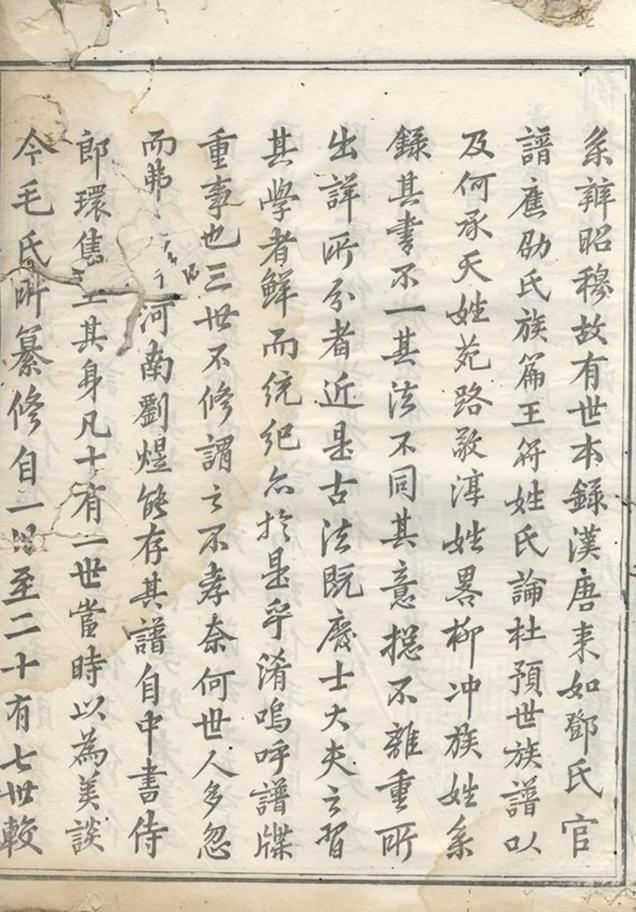 系辨昭穆故有世本錄漢唐来如鄧氏官
譜應劭氏族篇王符姓氏論杜預世族譜以
及何承天姓苑路敬淳姓畧柳冲族姓系
錄其書不一其法不同其意捴不離重所
出詳所分者近是古法既廢士大夫之習
其學者鮮而統紀亦於是乎淆嗚呼譜牒
重事也三世不修謂之不孝奈何世人多忽
而弗河南劉煜能存其譜自中書侍
郎環雋至其身凡十有一世當時以為美談
今毛氏所纂修自一世至二十有七世較